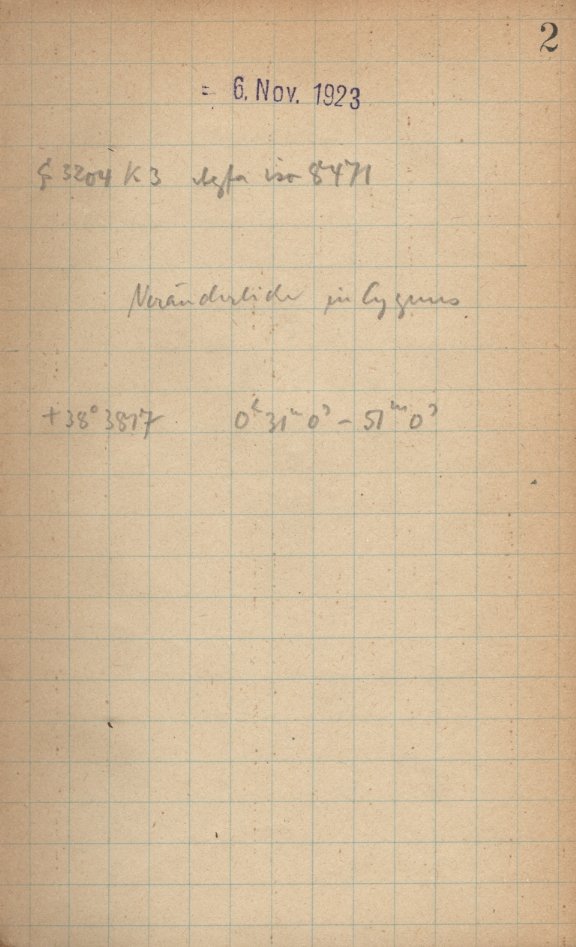 2
= 6. Nov. 1923
3204 K 3 Agfa iso 8471
Veränderliche in Cygnus
+38° 3817 0ʰ 31ᵐ 0ˢ – 51ᵐ 0ˢ